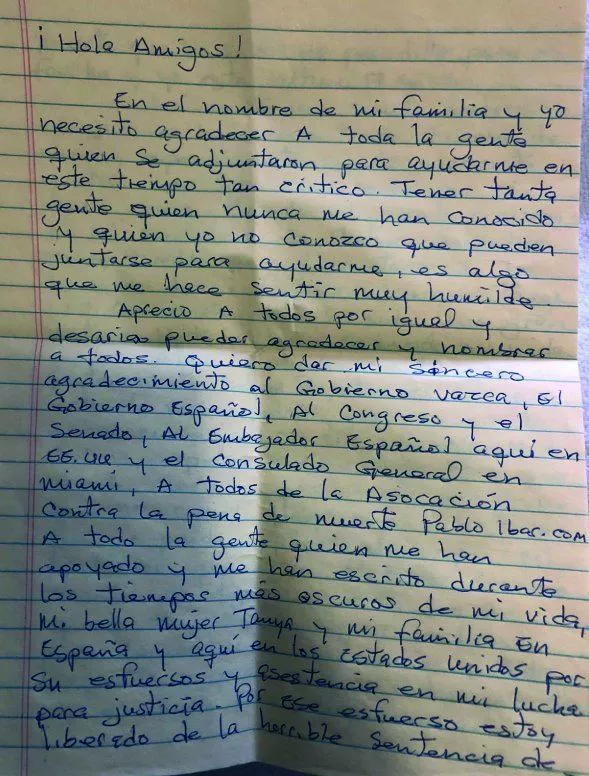 ¡Hola Amigos!
En el nombre de mi familia y yo
necesito agradecer A toda la gente
quien se adjuntaron para ayudarme en
este tiempo tan crítico. Tener tanta
gente quien nunca me han conocido
y quien yo no conozco que pueden
juntarse para ayudarme, es algo
que me hace sentir muy humilde.
Aprecio A todos por igual y
desaria pueder agradecer y nombrar
a todos. Quiero dar mi sincero
agradecimiento al Gobierno vazca, El
Gobierno Español, Al Congreso y el
Senado, Al Embajador Español aquí en
EE.UU y el Consulado General en
Miami, A todos de la Asocación
Contra la pena de muerte Pablo Ibar.com
A todo la gente quien me han
apoyado y me han escrito durante
los tiempos más oscuros de mi vida,
Mi bella mujer Tanya y mi familia En
España y aquí en los Estados Unidos por
Su esfuersos y asestencia en mi lucha
para justicia. Por ese esfuerso estoy
liberado de la horrible Sentencia de